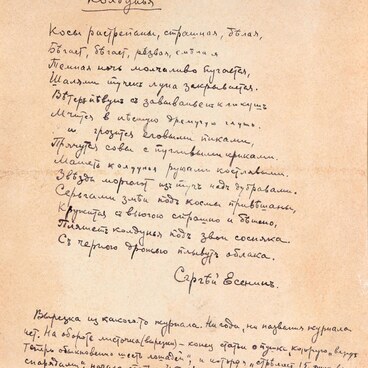 Колдунья
Косы растрепаны, страшная, бѣлая,
Бѣгает, бѣгает, рѣзвая, смѣлая
Темная ночь молчаливо пугается,
Шалями тучек луна закрывается.
Вѣтер-пѣвун с завываньем кликуш
Мчится в лѣсную дремучую глушь.
и грозится еловыми пиками,
Прячутся совы с пугливыми криками.
Машет колдунья руками костлявыми.
Звѣзды моргают из туч над дубравами.
Серьгами змѣи под косы привѣшаны,
Кружится с вьюгою страшно и бѣшено,
Пляшет колдунья под звон сосняка.
С черною дрожью плывут облака.
Сергѣй Есенин.
Вырезка из какого-то журнала. Ни года, ни названия журнала
нет. На обороте листочка (вырезки) – конец статьи о пушке, "которую" везут
теперь обыкновенно шесть лошадей", и которая "стрѣляет 15-
снарядами"